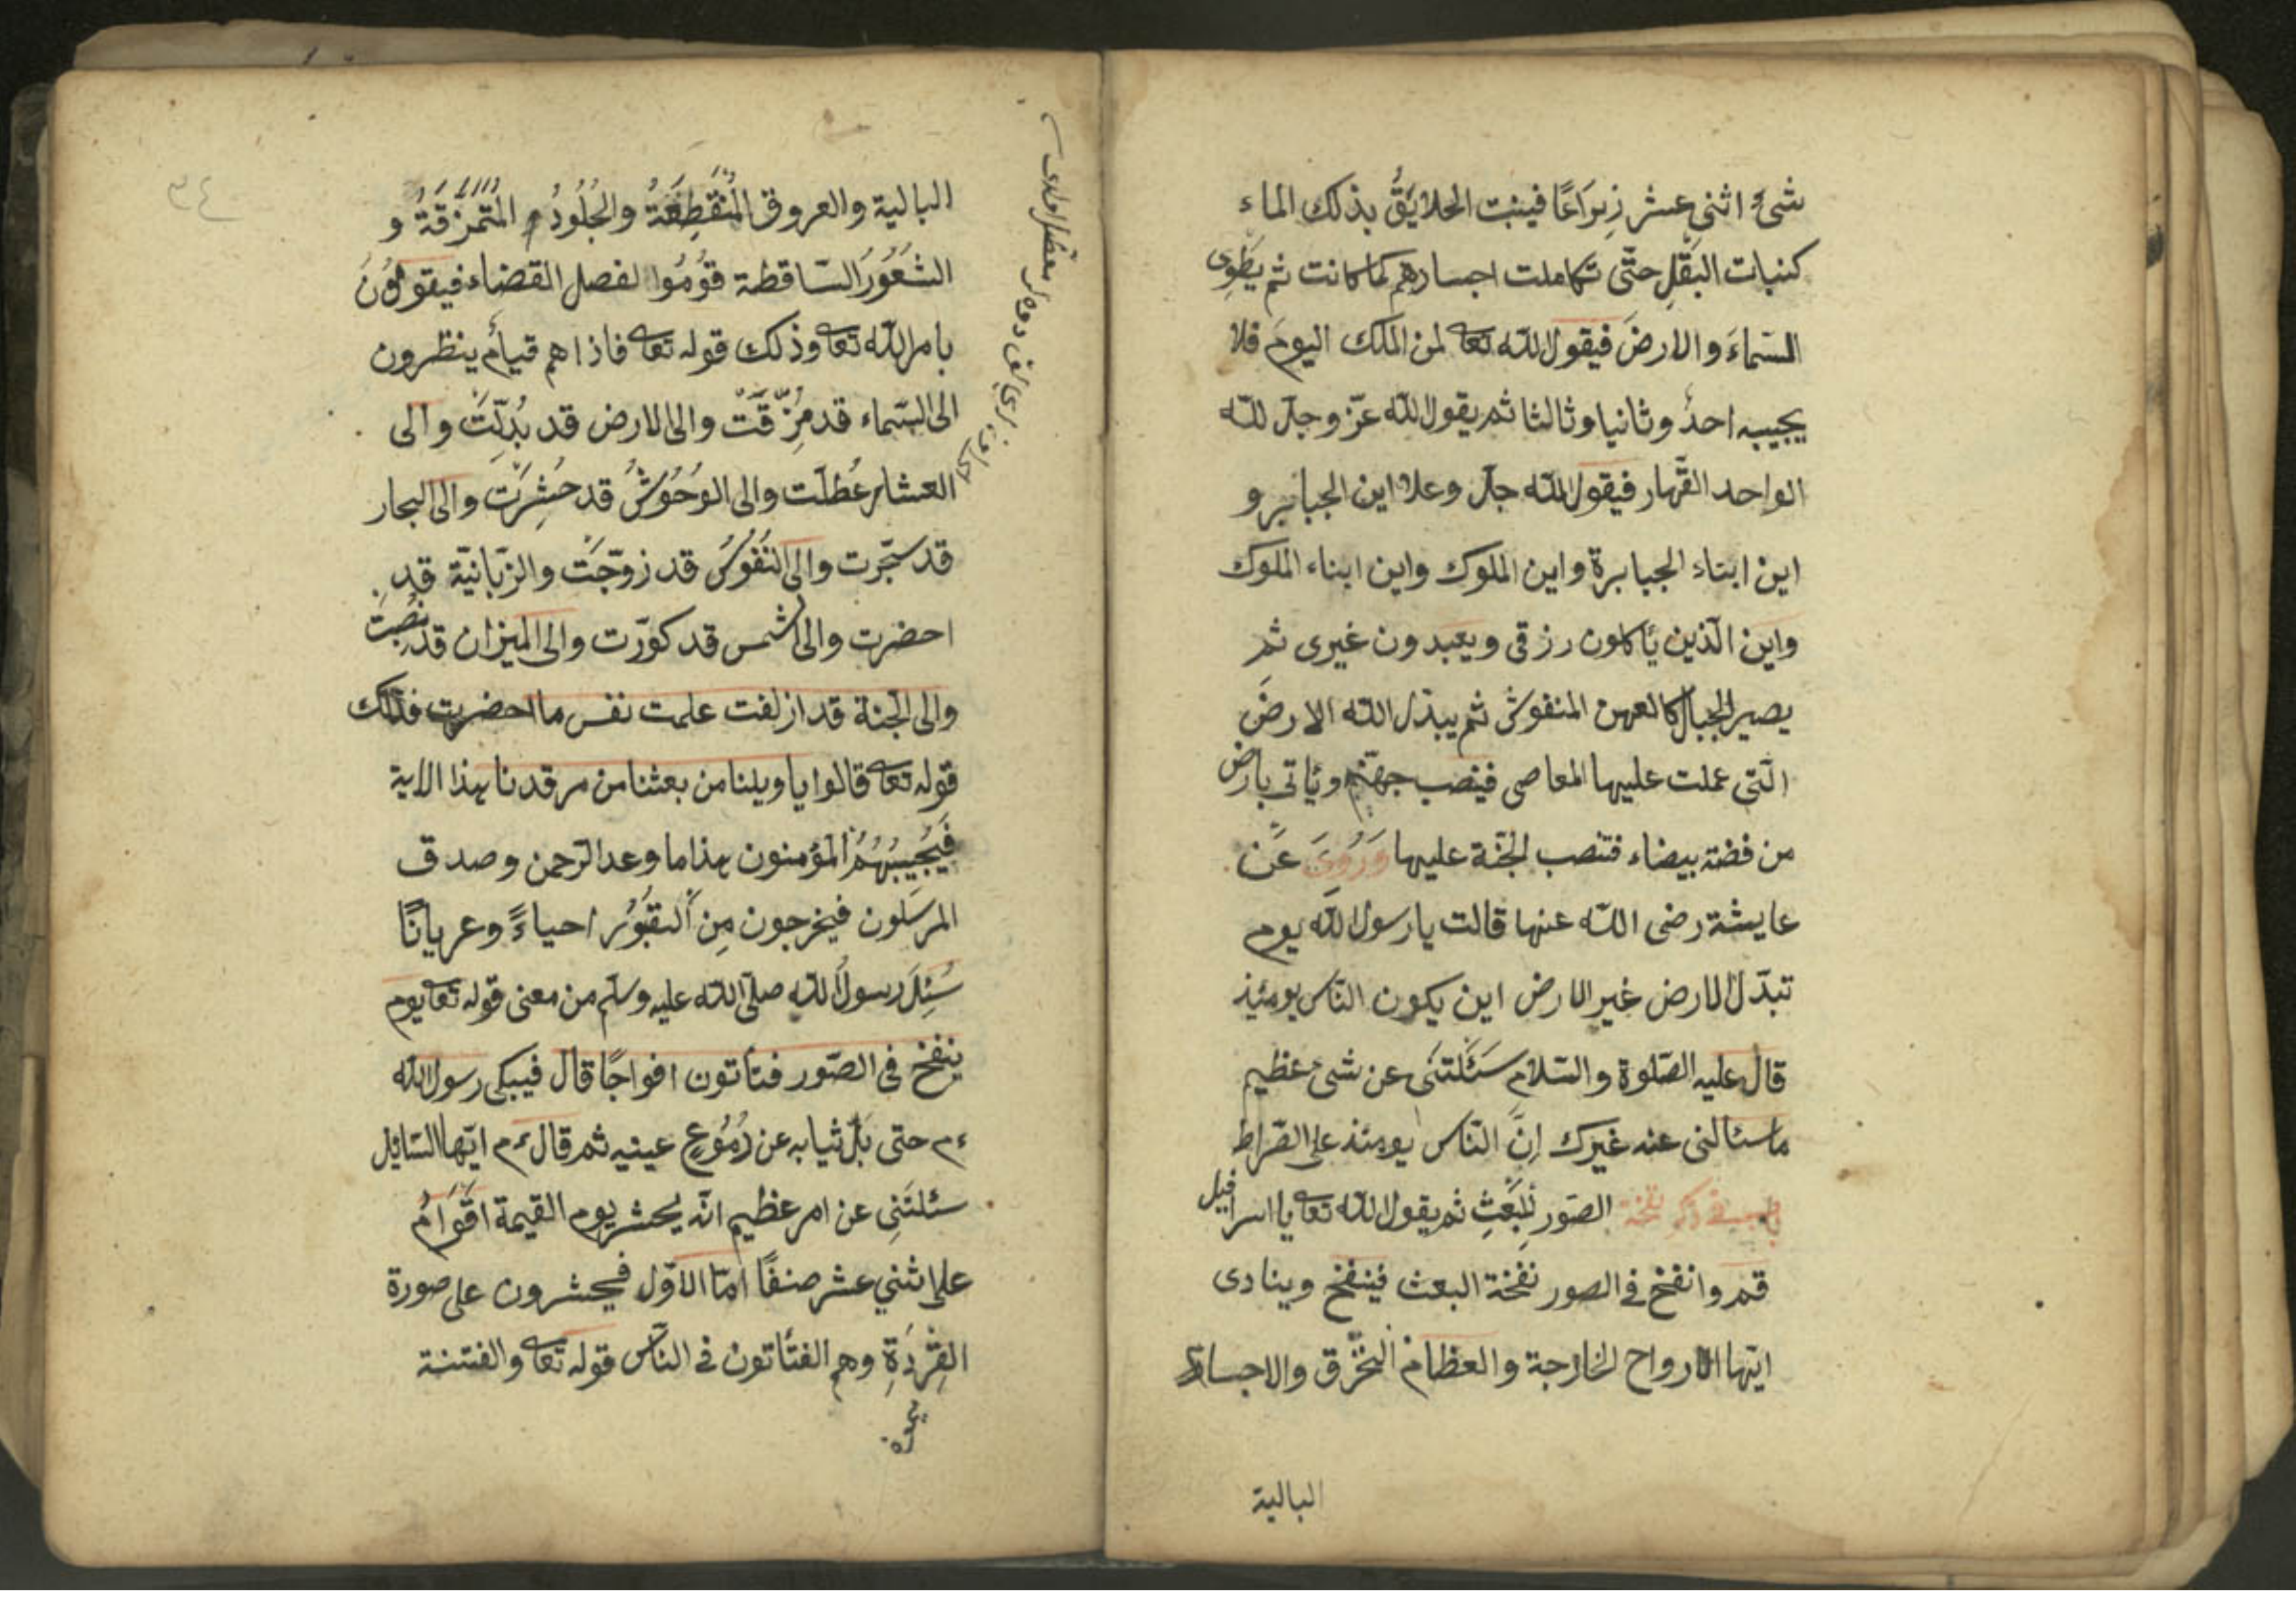 شئ اثنى عشر ذِرَاعًا فينبت الخلايَقُ بذلك الماء
كنبات البَقْلِ حتّى تكاملت اجسادهم كما كانت ثم يَطْوِى
السّماءَ والارضَ فيقول الله تعا لمن الملك اليومَ فلا
يجيبه احدٌ وثانيا وثالثا ثم يقول الله عزّ وجلّ لله
الواحد القهّار فيقول الله جلّ وعلا اين الجبابر و
اين ابناء الجبابرة واين الملوك واين ابناء الملوك
واين الّذين يأكلون رزقى ويعبدون غيرى ثم
يصير الجبال كالعهن المنفوش ثم يبدّل الله الارضَ
الّتى عملت عليها المعاصى فينصب جهنّم ويأتى بارض
من فضّة بيضاء فتنصب الجنّة عليها وَرُوِىَ عَنْ
عايشة رضى الله عنها قالت يا رسول الله يوم
تبدّل الارض غير الارض اين يكون النّاس يومئذ
قال عليه الصّلوة والسّلام سَئَلتَنى عن شئ عظيم
ماسئالنى عنه غيرك اِنَّ النّاس يومئذ على الصّراط
باب فى ذكر نفخة الصّور لِلبَعْثِ ثم يقول الله تعا يا اسرافيل
قم وانفخ فى الصور نفخة البعث فينفخ وينادى
ايّها الارواح الخارجة والعظام النخرق والاجساد
البالية
٣٤
البالية والعروق المُنْقَطِعَةُ والجُلُودُ المُتَمَزِّقَةُ و
الشعُورَ السّاقطة قوُمُوا لفصل القضاء فيقومُونَ
بامر الله تعا وذلك قوله تعا فاذاهم قيامٌ ينظرون
الى السّماء قد مُزِّقَتْ والى الارض قد بُدِّلَتْ والى
العشار عُطلّت والى الوُحُوشُ قد حُشِرَتْ والى البحار
قد سجّرت والى النفُوسُ قد زوّجَتْ والزّبانيّة قد
احضرت والى الشمس قد كوّرت والى الميزان قد نُصِبَتْ
والى الجنّة قد ازلفت علمت نفس ما احضرت فذلك
قوله تعا قالوا يا ويلنا من بعثنا من مرقدنا هذا الاية
فَيُجِيبُهُمُ المؤمنون هذا ما وعد الرّحمن وصدق
المرسَلون فيخرجون مِنَ القبُورُ احياءً وعريانًا
سُئِلَ رسولُ الله صلّى الله عليه وسلّم من معنى قوله تعا يوم
ينفخ فى الصّور فتأتون افواجًا قال فيبكى رسول الله
ءم حتى بَلّ ثيابه عن دُمُوعِ عينيه ثم قال ءم ايّها السّايل
سئلتَنِى عن امر عظيم انّه يحشر يوم القيمة اَقْوَامٌ
على اثني عشر صنفًا امّا الاوّل فيحشرون على صورة
القِرْدَةِ وهم الفتّاتون فى النّاس قوله تعا والفتنة